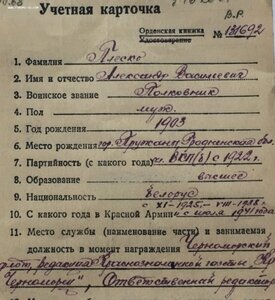 В.Р.
Учетная карточка
Орденская книжка
Удостоверение
№ 131692
1. Фамилия Плеско
2. Имя и отчество Александр Васильевич
3. Воинское звание Полковник
4. Пол муж.
5. Год рождения 1903
6. Место рождения гор. Пружаны, Гродненской обл.
7. Партийность (с какого года) чл. ВКП(б) с 1922 г.
8. Образование высшее
9. Национальность белорус
с XI-1925 - VIII-1928
10. С какого года в Красной Армии с июля 1941 года
11. Место службы (наименование части) и занимаемая
должность в момент награждения Черноморский
флот, редакция Краснознаменной газеты "Кр.
Черноморец", Ответственный редактор